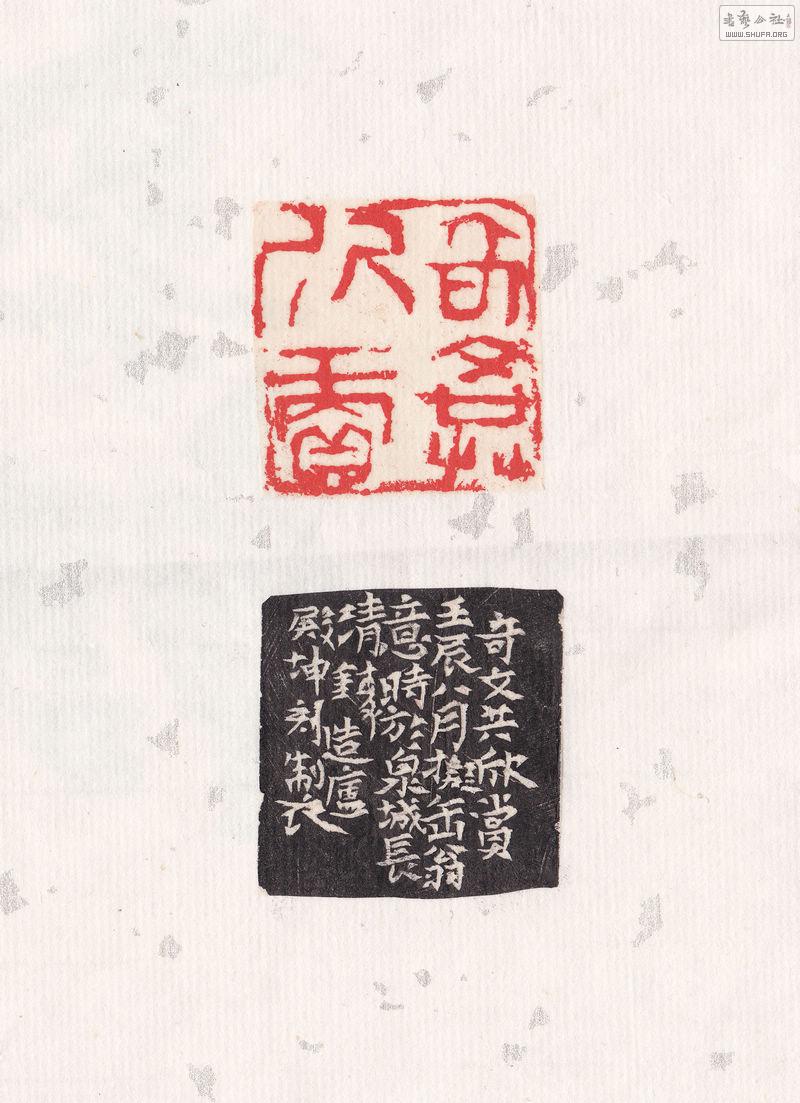 书艺公社
WWW.SHUFA.ORG
奇文共欣賞
壬辰八月擬缶翁
意時於泉城長
清造廬
殿坤刻制衣